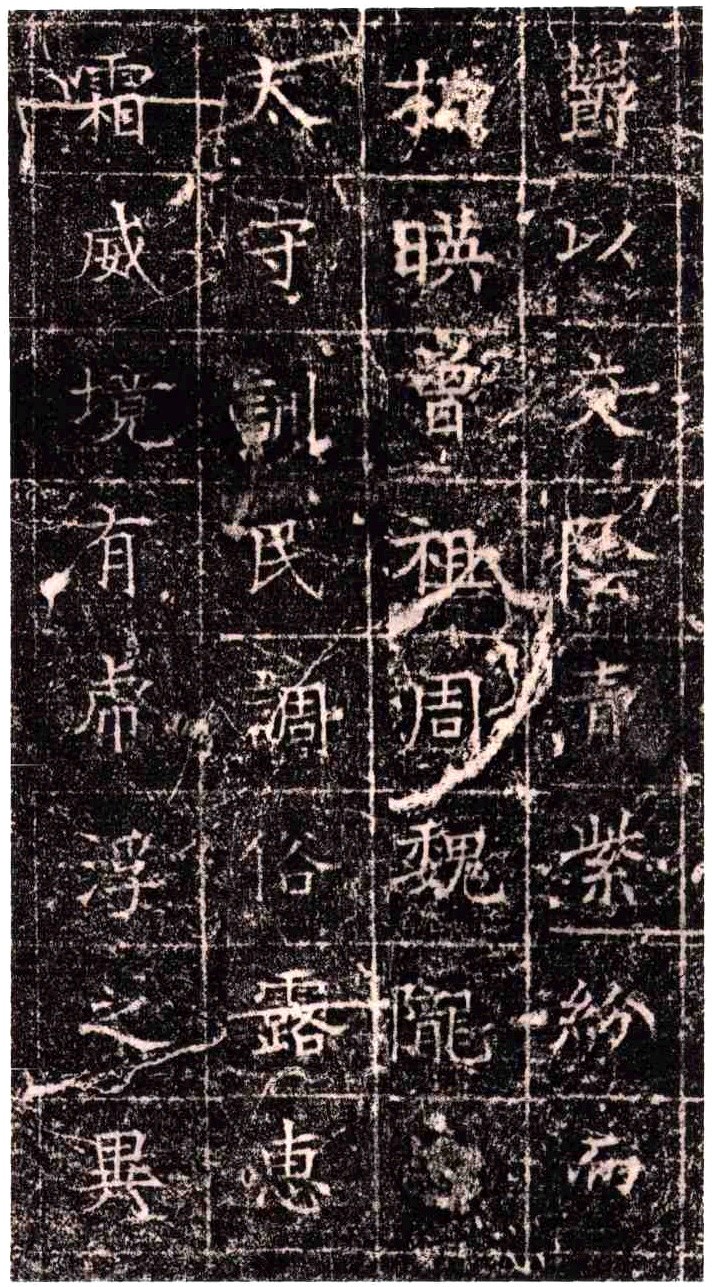 欝以交陰青紫紛而
相暎曾祖周魏隴
太守訓民調俗露恵
霜威境有虎浮之異